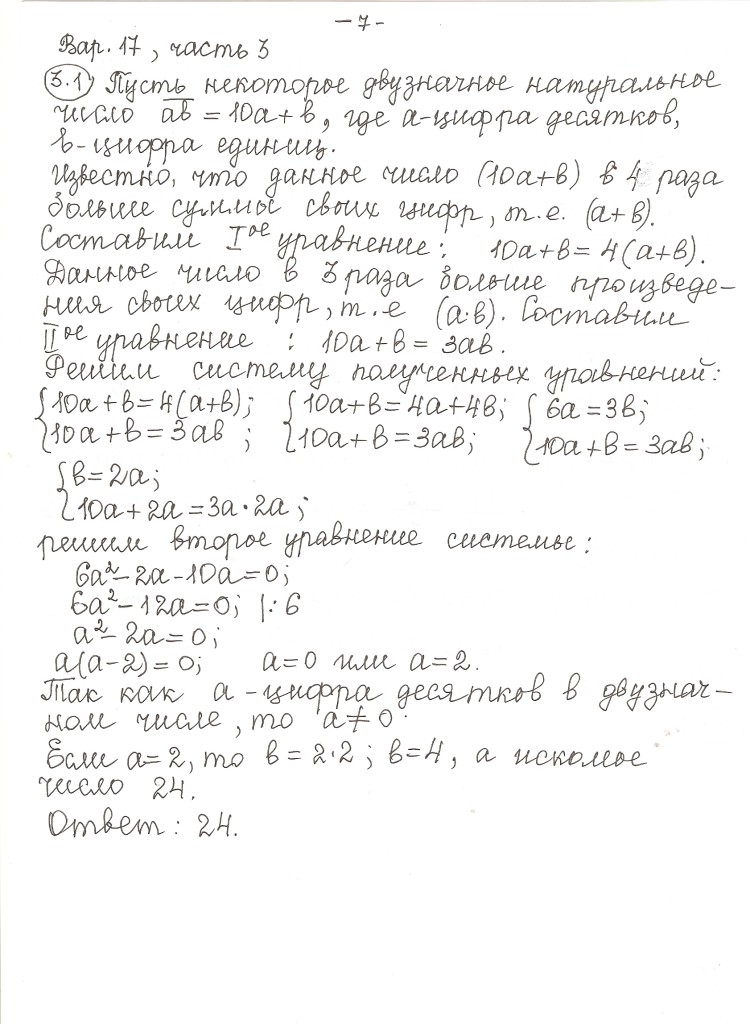 - 7 -
Вар. 17, часть 3
3.1 Пусть некоторое двузначное натуральное
число ab̅ = 10a + b, где a - цифра десятков,
b - цифра единиц.
Известно, что данное число (10a+b) в 4 раза
больше суммы своих цифр, т.е. (a+b).
Составим I ое уравнение: 10a+b = 4(a+b).
Данное число в 3 раза больше произведе-
ния своих цифр, т.е (a·b). Составим
II ое уравнение : 10a+b = 3ab.
Решим систему полученных уравнений:
{10a+b=4(a+b); {10a+b=4a+4b; {6a=3b;
{10a+b=3ab ; {10a+b=3ab; {10a+b=3ab;
{b=2a;
{10a+2a=3a·2a;
решим второе уравнение системы:
6a²-2a-10a=0;
6a²-12a=0; |:6
a²-2a=0;
a(a-2)=0; a=0 или a=2.
Так как a - цифра десятков в двузнач-
ном числе, то a≠0.
Если a=2, то b=2·2; b=4, а искомое
число 24.
Ответ: 24.